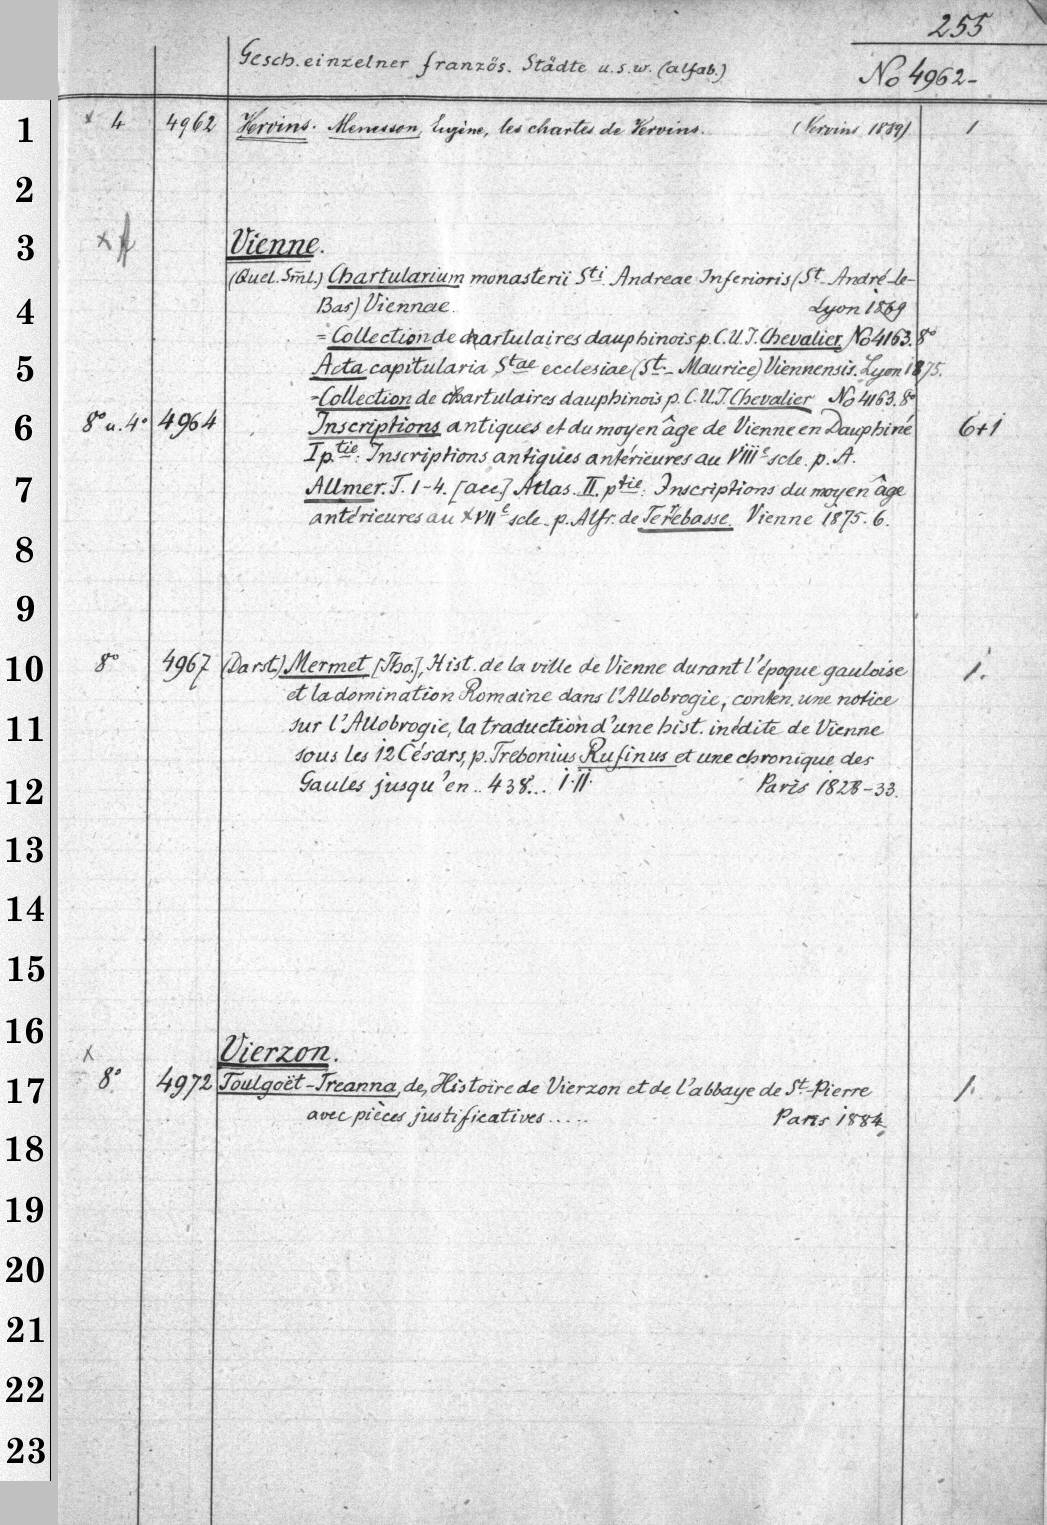 255
Gesch. einzelner französ. Städte u.s.w. (alfab.)
No 4962-
1 x 4 4962 Vervins. Menesson, Eugène, les chartes de Vervins. (Vervins 1889) 1
2
3 x Vienne.
(Quel. Sm̄l.) Chartularium monasterii Sti Andreae Inferioris (St. André-le-
4 Bas) Viennae. Lyon 1869
= Collection de chartulaires dauphinois p. C.U.J. Chevalier No 4163. 8°
5 Acta capitularia Stae ecclesiae (St.- Maurice) Viennensis. Lyon 1875.
= Collection de chartulaires dauphinois p. C.U.J. Chevalier No 4163. 8°
6 8° u. 4° 4964 Inscriptions antiques et du moyen âge de Vienne en Dauphiné 6+1
I p.tie: Inscriptions antiques antérieures au VIIIe scle. p. A.
7 Allmer. T. 1-4. [acc.] Atlas. II. ptie: Inscriptions du moyen âge
antérieures au XVIIe scle. p. Alfr. de Terrebasse. Vienne 1875. 6.
8
9
10 8° 4967 (Darst.) Mermet [Tho.], Hist. de la ville de Vienne durant l'époque gauloise 1.
et la domination Romaine dans l'Allobrogie, conten. une notice
11 sur l'Allobrogie, la traduction d'une hist. inédite de Vienne
sous les 12 Césars, p. Trebonius Rufinus et une chronique des
12 Gaules jusqu'en .. 438... I.II. Paris 1828-33.
13
14
15
16 Vierzon.
x
17 8° 4972 Toulgoët-Treanna, de, Histoire de Vierzon et de l'abbaye de St-Pierre 1.
avec pièces justificatives ..... Paris 1884
18
19
20
21
22
23